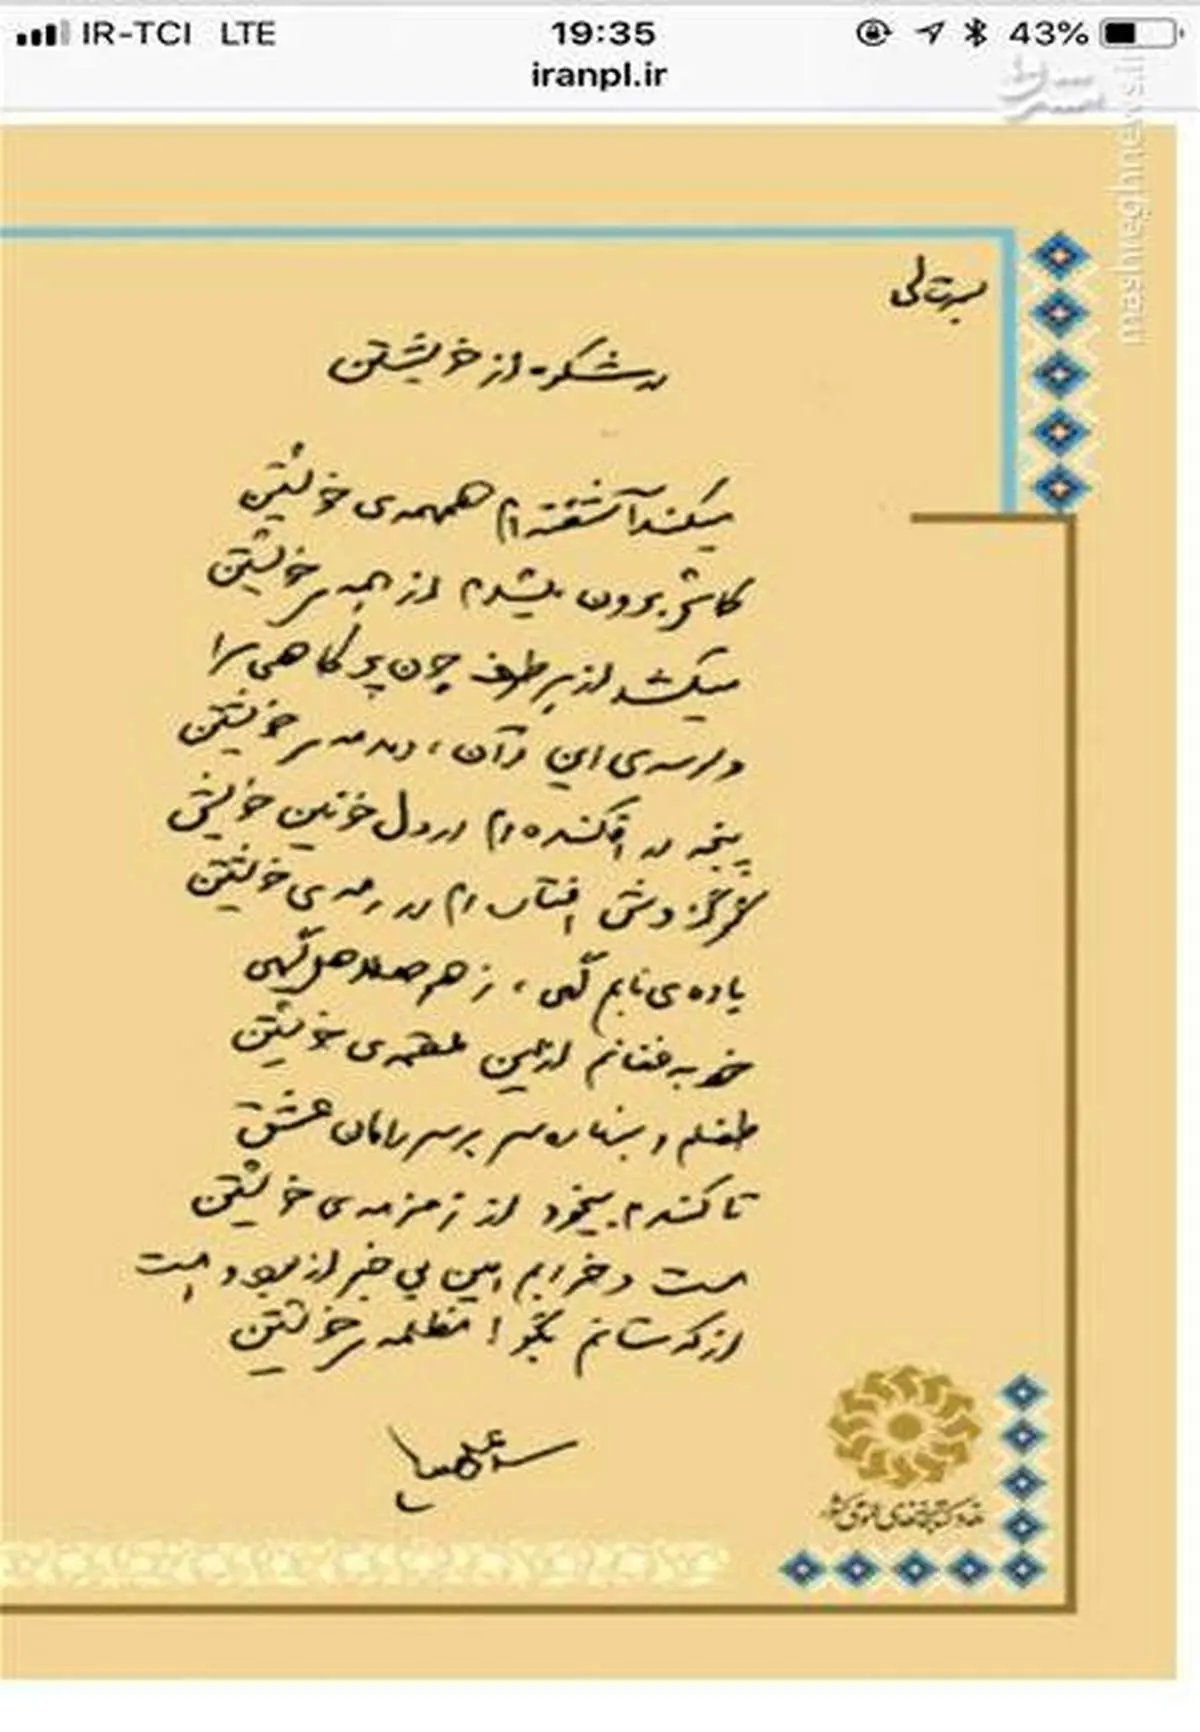 IR-TCI LTE 19:35 43%
iranpl.ir
مشرق
mashreghnews.ir
بسمه‌تعالی
در شکوه از خویشتن
میکند آشفته‌ام همهمه‌ی خویشتن
کاش برون میشدم از همه‌ی خویشتن
میکشد از هر طرف چون پر کاهی مرا
وسوسه‌ی این و آن، دمدمه‌ی خویشتن
پنجه در افکنده‌ام در دل خونین خویش
گرگ‌وش افتاده‌ام در رمه‌ی خویشتن
باده‌ی نابم گهی، زهر هلاهل گهی
خود به فغانم ازین ملقمه‌ی خویشتن
طفلم و بنهاده سر بر سر دامان عشق
تا کندم بیخود از زمزمه‌ی خویشتن
مست و خرابم امین بی خبر از بود و هست
از که ستانم بگو! مظلمه‌ی خویشتن
سید علی خامنه‌ای
نهاد کتابخانه‌های عمومی کشور